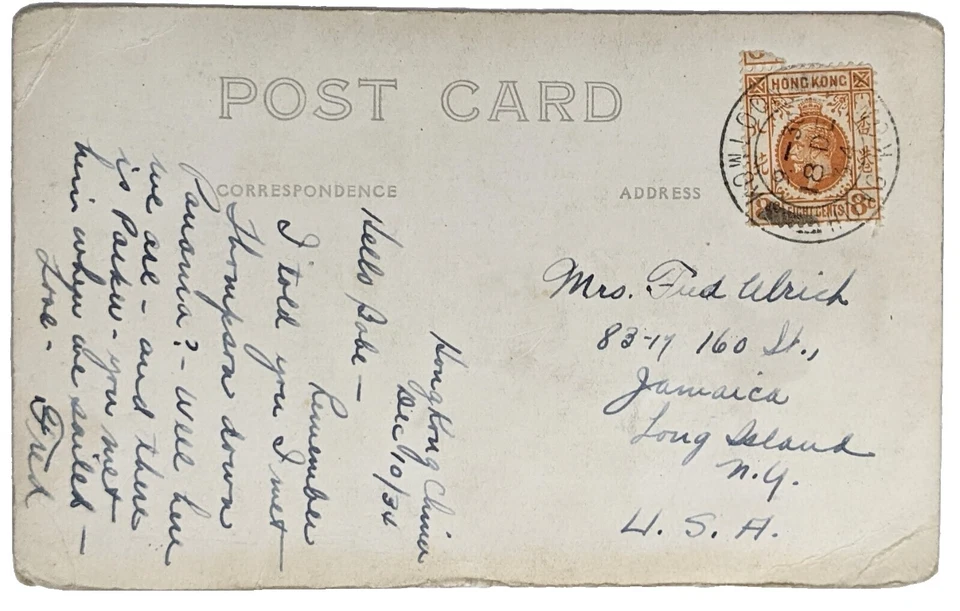 POST CARD
CORRESPONDENCE
ADDRESS
HONG KONG
8c EIGHT CENTS 8c
KOWLOON
HONG KONG
Hong Kong China
Dec 10/34
Hello Babe —
Remember
I told you I met
Thompson down
Panama? – Well here
we are – and there
is Parker – you met
him when we sailed –
Love –
Fred
Mrs. Fred Ulrich
83-17 160 St.,
Jamaica
Long Island
N.Y.
U. S. A.